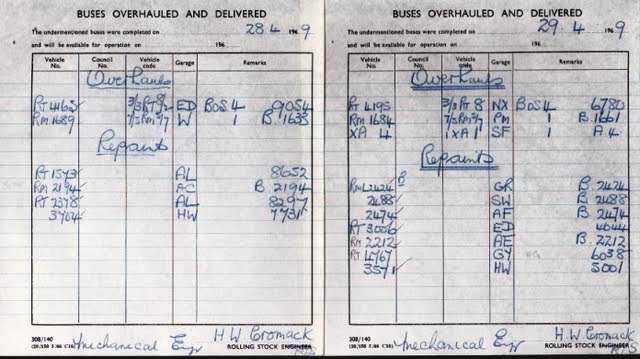 BUSES OVERHAULED AND DELIVERED
The undermentioned buses were completed on 28.4 1969
and will be available for operation on 196
Vehicle No. Council No. Vehicle code Garage Remarks
Overhauls
RT 4163 3/3RT 8 ED BOS 4 9054
RM 1689 7/5RM 5/7 W 1 B.1633
Repaints
RT 1573 AL 8652
RM 2194 AC B.2194
RT 2378 AL 8297
3704 HW 7731
Mechanical Engr H W Cromack
308/140 ROLLING STOCK ENGINEER
BUSES OVERHAULED AND DELIVERED
The undermentioned buses were completed on 29.4 1969
and will be available for operation on 196
Vehicle No. Council No. Vehicle code Garage Remarks
Overhauls
RT 4195 3/3RT 8 NX BOS 4 6780
RM 1684 7/5RM 5/7 PM 1 B.1661
XA 4 1XA1 SF 1 A 4
Repaints
RML2424 B GR B.2424
2488 SW B.2488
2474 AF B.2474
RT 3006 ED 4044
RM 2212 AE B.2212
RT 4767 GY 6038
3571 HW 5001
Mechanical Engr H W Cromack
308/140 ROLLING STOCK ENGINEER